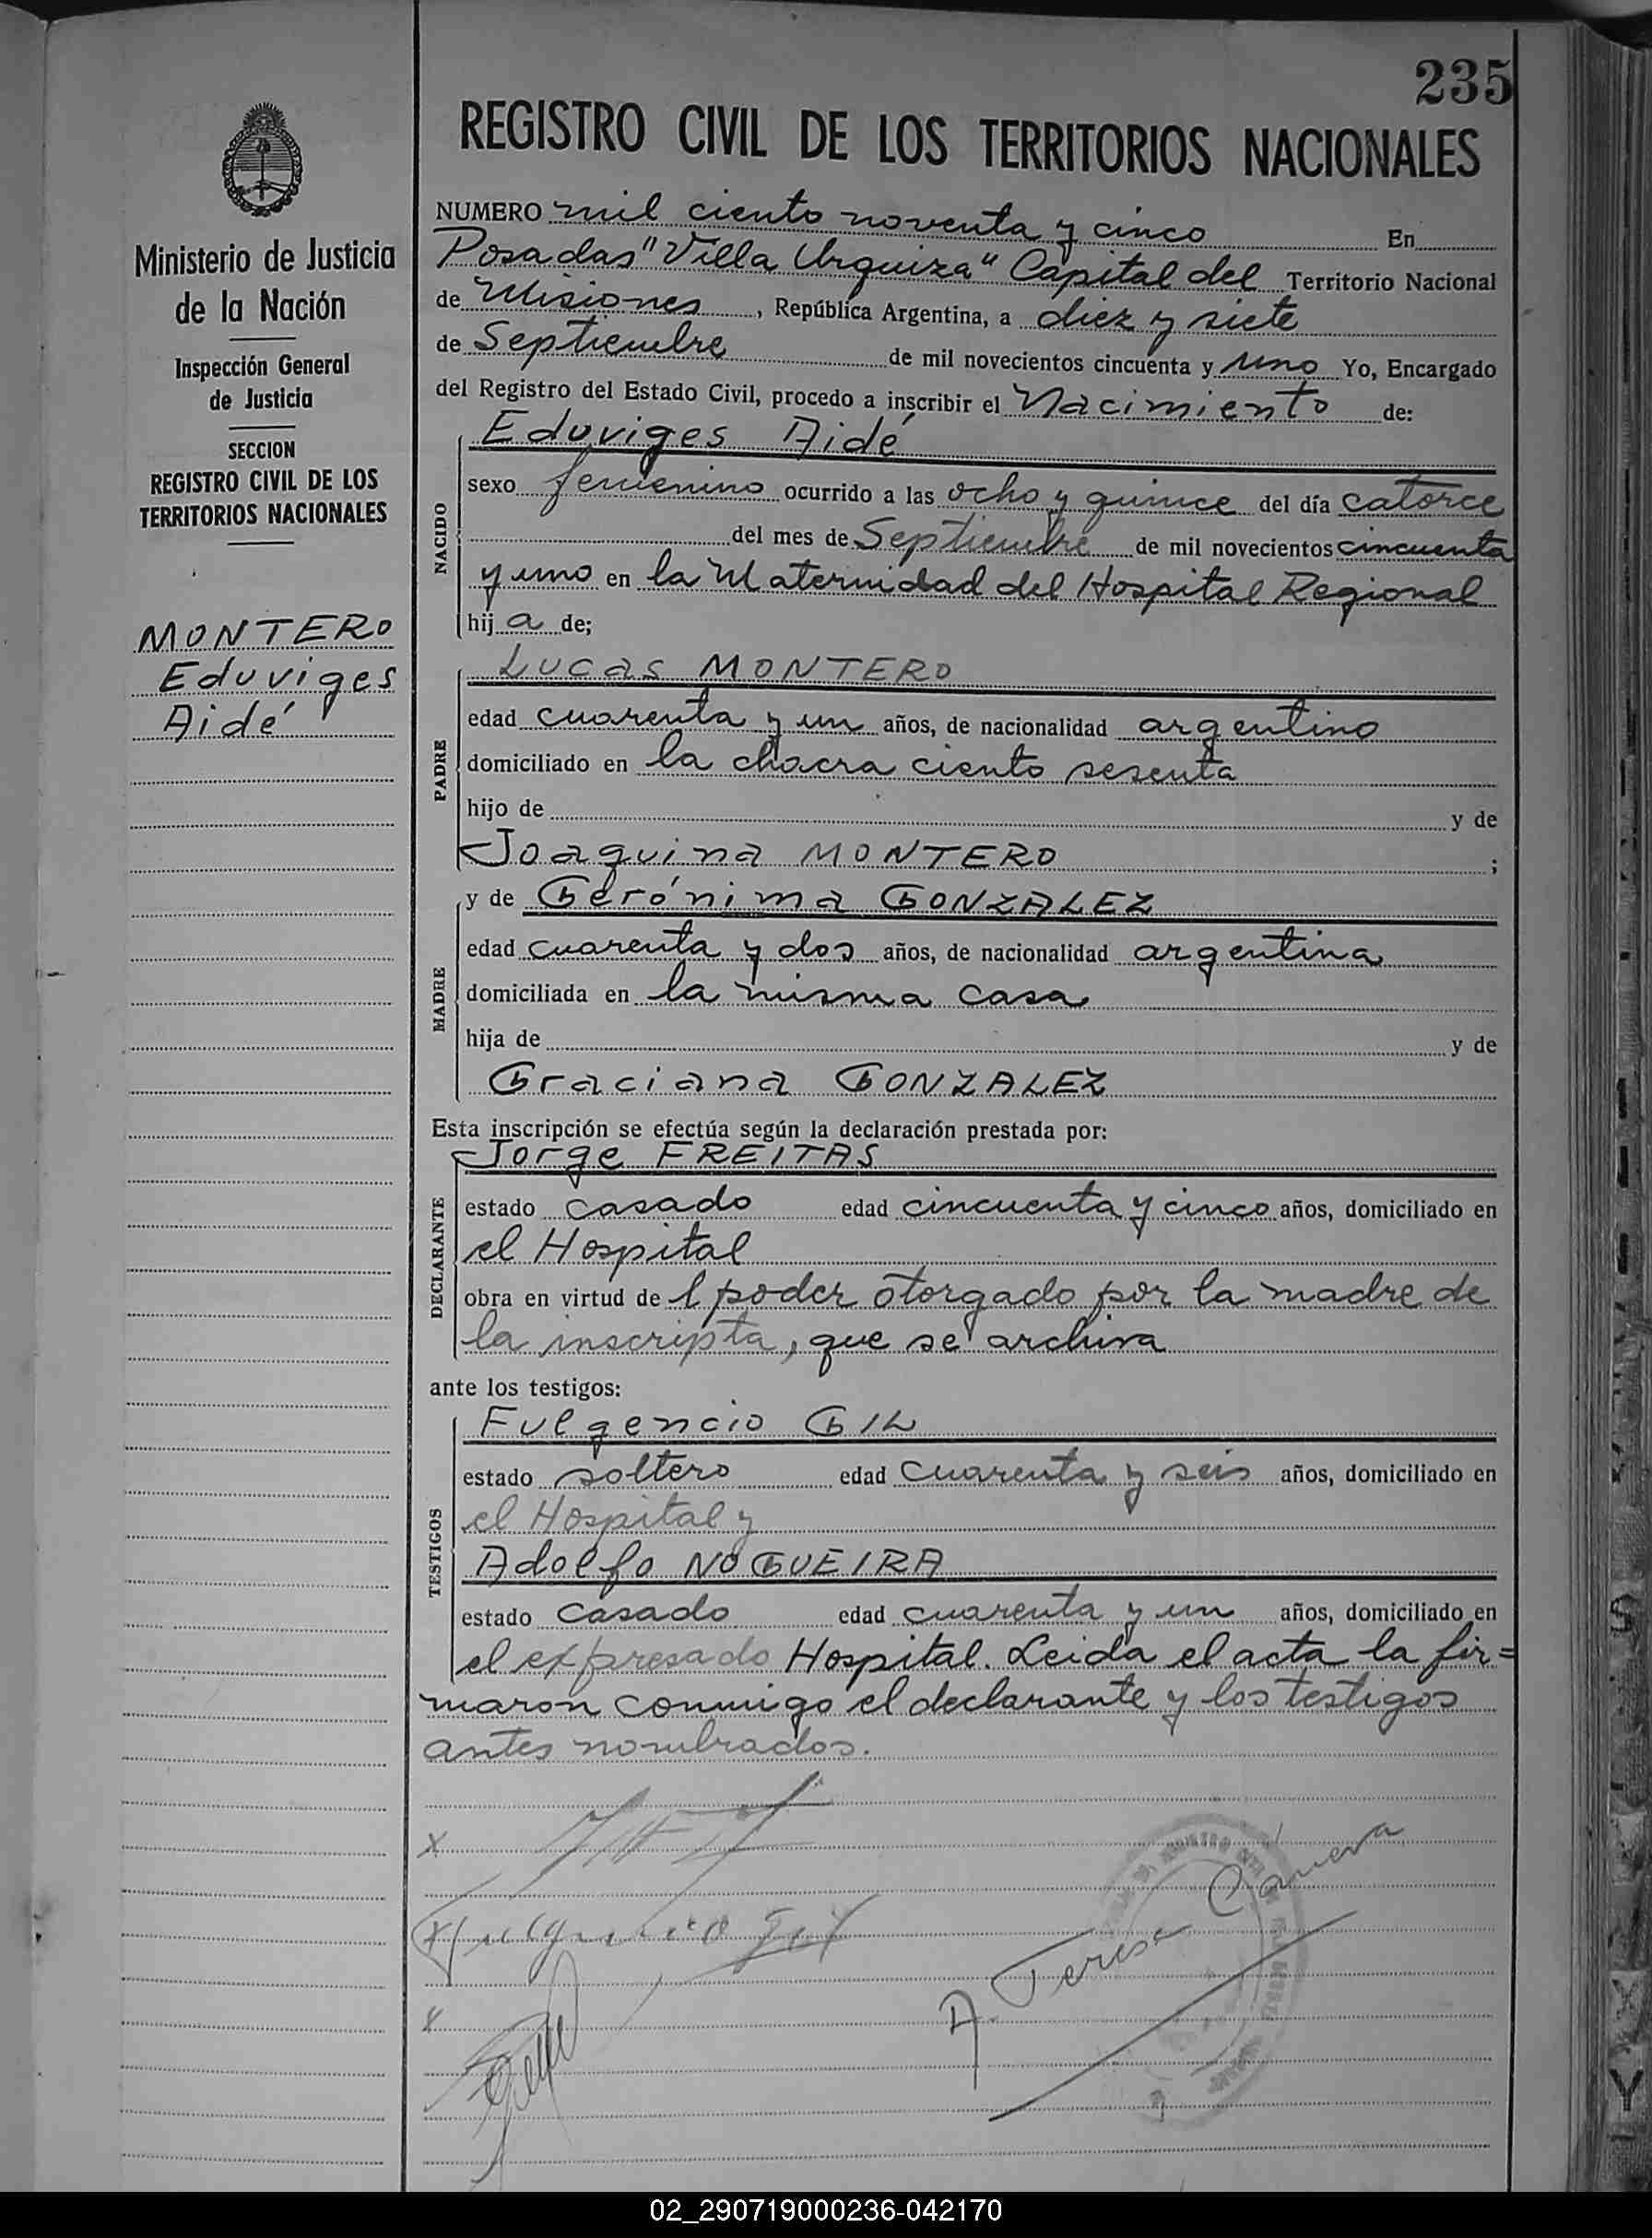 235
REGISTRO CIVIL DE LOS TERRITORIOS NACIONALES
Ministerio de Justicia
de la Nación
Inspección General
de Justicia
SECCION
REGISTRO CIVIL DE LOS
TERRITORIOS NACIONALES
MONTERO
Eduviges
Aidé
NUMERO mil ciento noventa y cinco En
Posadas "Villa Urquiza" Capital del Territorio Nacional
de Misiones, República Argentina, a diez y siete
de Septiembre de mil novecientos cincuenta y uno Yo, Encargado
del Registro del Estado Civil, procedo a inscribir el Nacimiento de:
NACIDO
Eduviges Aidé
sexo femenino ocurrido a las ocho y quince del día catorce
del mes de Septiembre de mil novecientos cincuenta
y uno en la Maternidad del Hospital Regional
hij a de;
PADRE
Lucas MONTERO
edad cuarenta y un años, de nacionalidad argentino
domiciliado en la chacra ciento sesenta
hijo de y de
Joaquina MONTERO ;
MADRE
y de Gerónima GONZALEZ
edad cuarenta y dos años, de nacionalidad argentina
domiciliada en la misma casa
hija de y de
Graciana GONZALEZ
Esta inscripción se efectúa según la declaración prestada por:
DECLARANTE
Jorge FREITAS
estado casado edad cincuenta y cinco años, domiciliado en
el Hospital
obra en virtud de l poder otorgado por la madre de
la inscripta, que se archiva
ante los testigos:
TESTIGOS
Fulgencio GIL
estado soltero edad cuarenta y seis años, domiciliado en
el Hospital y
Adolfo NOGUEIRA
estado casado edad cuarenta y un años, domiciliado en
el expresado Hospital. Leida el acta la fir=
maron conmigo el declarante y los testigos
antes nombrados.
x
x Fulgencio Gil
x
A. Teresa
02_290719000236-042170